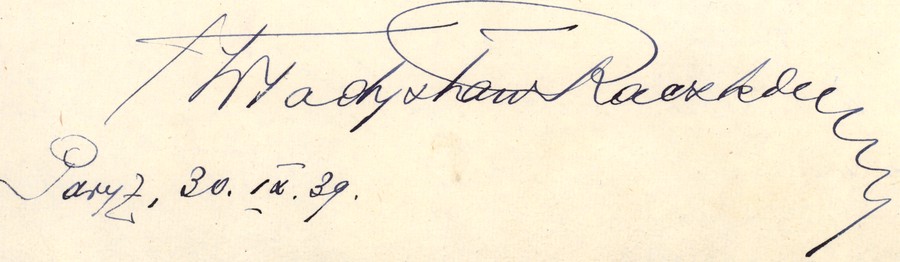 Władysław Raczkiewicz
Paryż, 30. IX. 39.